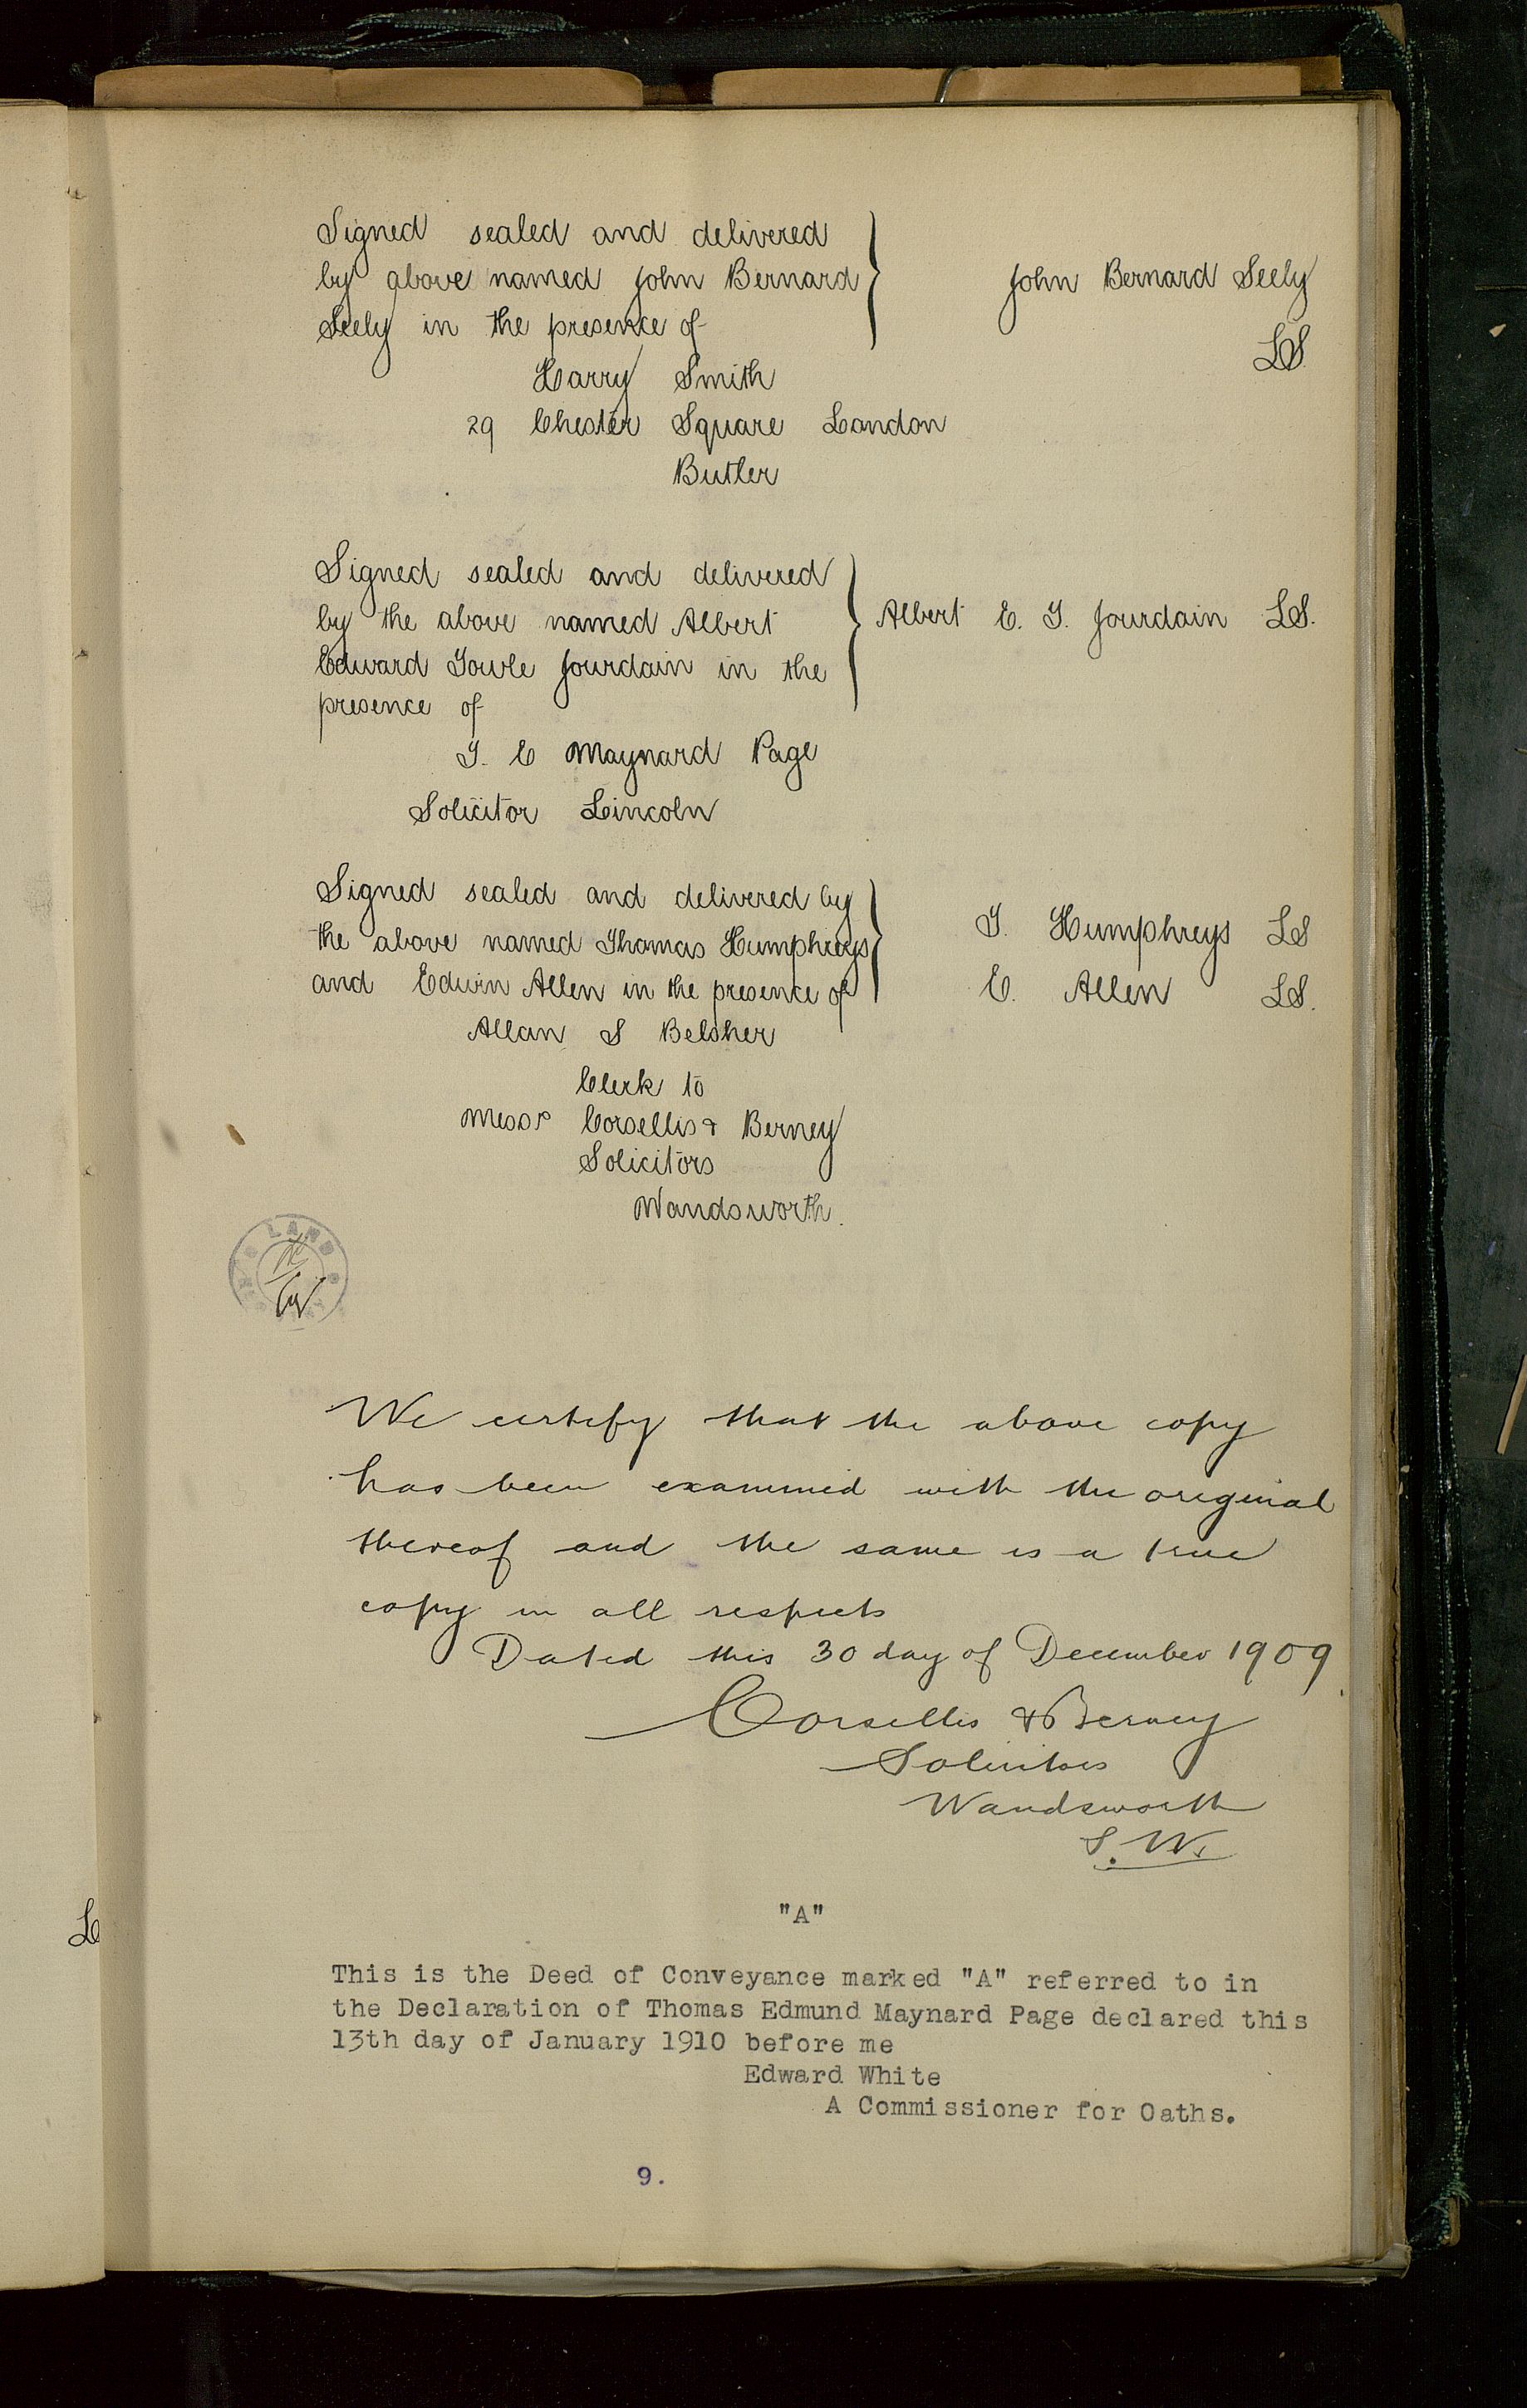 Signed sealed and delivered
by above named John Bernard
Seely in the presence of
John Bernard Seely
LS.
Harry Smith
29 Chester Square London
Butler
Signed sealed and delivered
by the above named Albert
Edward Towle Jourdain in the
presence of
Albert E. T. Jourdain LS.
T. E Maynard Page
Solicitor Lincoln
Signed sealed and delivered by
the above named Thomas Humphreys
and Edwin Allen in the presence of
T. Humphreys LS
E. Allen LS.
Allan S Belsher
Clerk to
Messrs Corsellis & Berney
Solicitors
Wandsworth.
LAND
We certify that the above copy
has been examined with the original
thereof and the same is a true
copy in all respects
Dated this 30 day of December 1909
Corsellis & Berney
Solicitors
Wandsworth
S.W.
"A"
This is the Deed of Conveyance marked "A" referred to in
the Declaration of Thomas Edmund Maynard Page declared this
13th day of January 1910 before me
Edward White
A Commissioner for Oaths.
9.